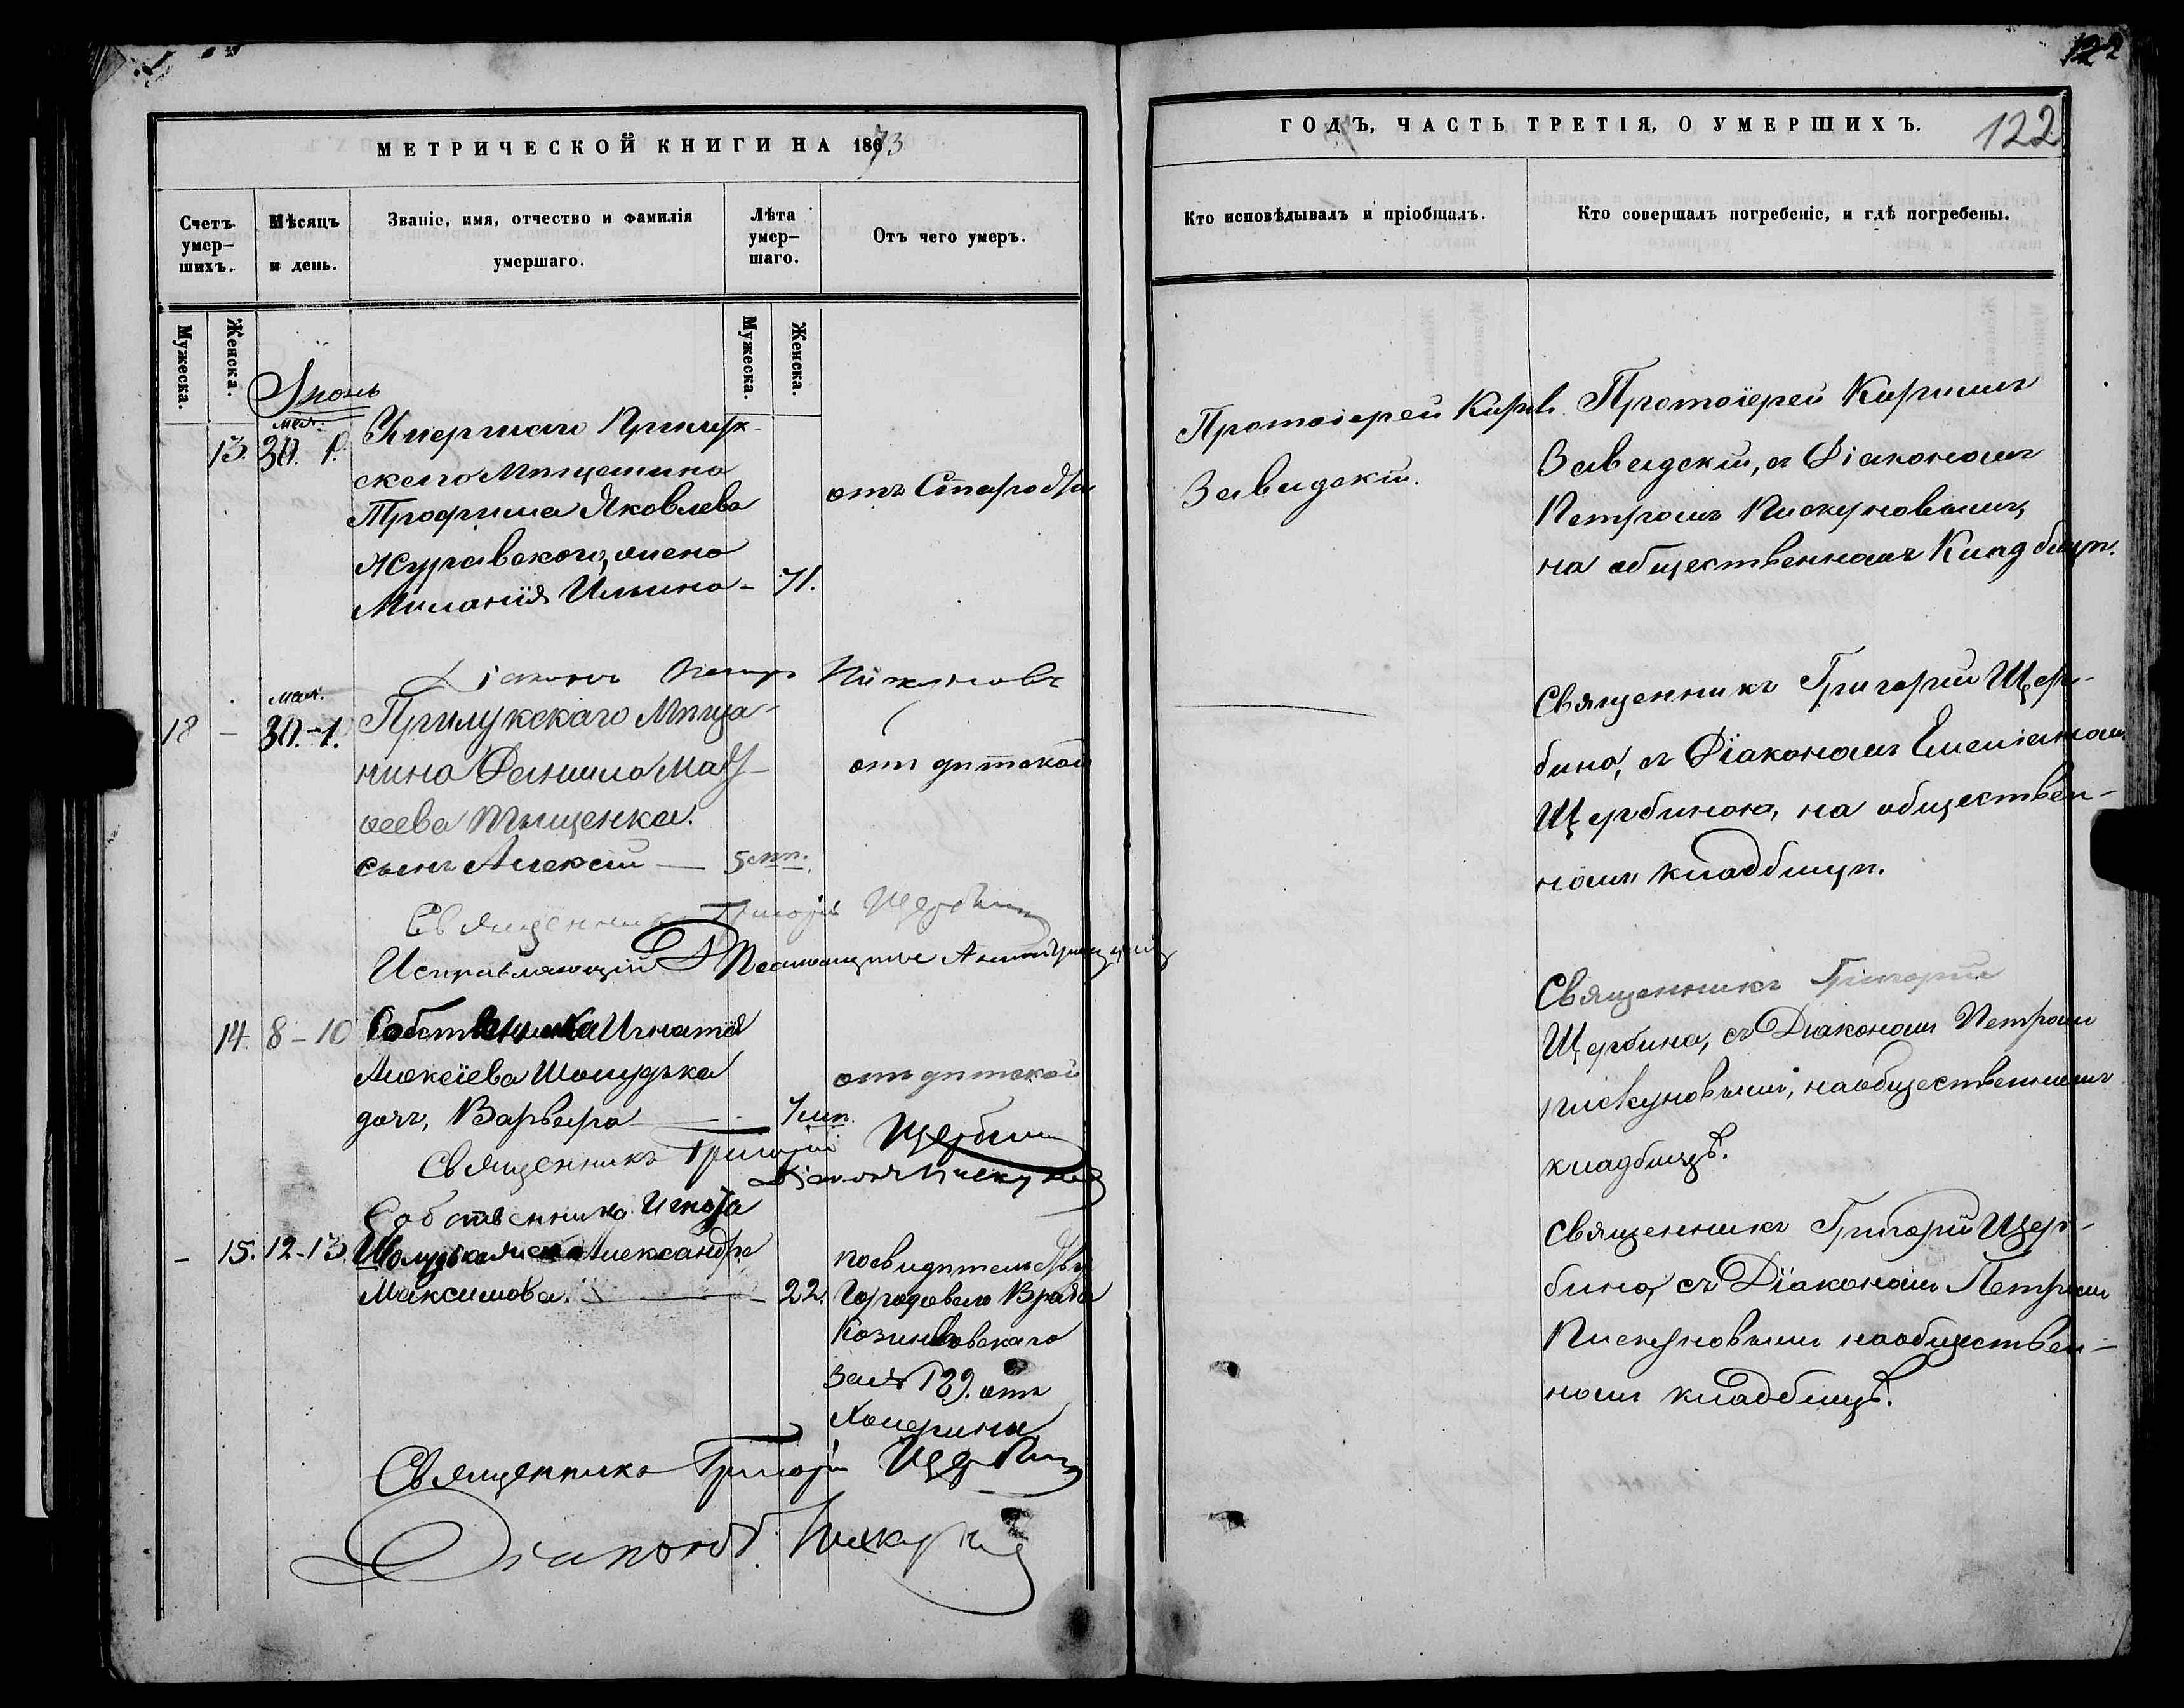 122
МЕТРИЧЕСКОЙ КНИГИ НА 1873
ГОДЪ, ЧАСТЬ ТРЕТІЯ, О УМЕРШИХЪ.
122
Счетъ умер-
шихъ.
Мѣсяцъ
и день.
Званіе, имя, отчество и фамилія
умершаго.
Лѣта
умер-
шаго.
Отъ чего умеръ.
Кто исповѣдывалъ и пріобщалъ.
Кто совершалъ погребеніе, и гдѣ погребены.
Мужеска.
Женска.
Мужеска.
Женска.
Іюнь
мая.
13. 30. 1.
Умершаго Прилук-
скаго Мѣщанина
Трофима Яковлева
Журавскаго, жена
Миланія Ильина - 71.
отъ Старости
Протоіерей Кирил.
Завадскій.
Протоіерей Кириллъ
Завадскій, съ Діакономъ
Петромъ Пискуновымъ,
на общественномъ Кладбищѣ.
Діаконъ Петръ Піжуновъ
мая.
18 - 30.-1.
Прилукскаго Мѣща-
нина Даніила Мат-
ѳеева Тищенка.
сынъ Алексій — 5 лѣт.
отъ дѣтской
Священникъ Григорій Щер-
бина, съ Діакономъ Емеліаномъ
Щербиною, на обществен-
номъ кладбищѣ.
Священникъ Григорій Щербина
Исправляющій
14. 8-10
Собственника Игнатія
Алексіева Шолудька
дочь, Варвара
отъ дѣтской
Священникъ Григорій
Щербина, съ Діакономъ Петромъ
Пискуновымъ, на общественномъ
кладбищѣ.
Священникъ Григорій Щербина
Діаконъ Пискунов
- 15. 12-13.
Собственника Игната
Шолудька жена Александра
Максимова. — 22.
по свидѣтельству
Городоваго Врача
Козинцовскаго
за № 129. отъ
Холерины
Священникъ Григорій Щер-
бина, съ Діакономъ Петромъ
Пискуновымъ на обществен-
номъ кладбищѣ.
Священникъ Григорій Щербина
Діаконъ П. Пискунов